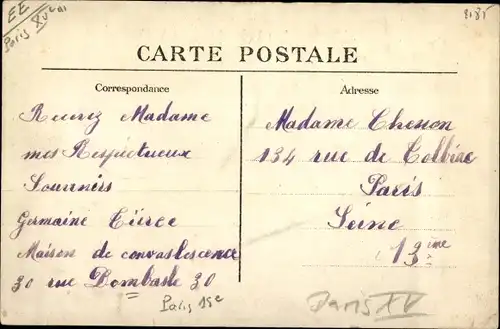 EE
Paris XVe
CARTE POSTALE
Correspondance
Recevez Madame
mes Respectueux
Souvenirs
Germaine
Maison de convaslescence
30 rue Dombasle 30
Paris 15e
Adresse
Madame Chesson
134 rue de Tolbiac
Paris
Seine
13ème
Paris XV